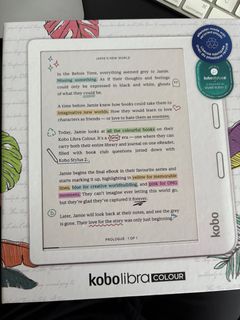 JAMIE'S NEW WORLD
In the Before Time, everything seemed grey to Jamie.
Missing something. As if their thoughts and feelings
could only be expressed in black and white, ghosts
of what they could be.
A time before Jamie knew how books could take them to
imaginative new worlds. How they would learn to love
characters as friends — or love to hate them as enemies.
Today, Jamie looks at all the colourful books on their
Kobo Libra Colour. It's a new era—one where they can
carry both their entire library and journal on one eReader,
filled with book club questions jotted down with
Kobo Stylus 2.
Jamie begins the final eBook in their favourite series and
starts marking it up, highlighting in yellow for memorable
lines, blue for creative worldbuilding, and pink for OMG
moments. They can't imagine ever letting this world go,
but they're glad they've captured it forever.
Later, Jamie will look back at their notes, and see the grey
is gone. Their love for the story was only just beginning.
PROLOGUE · 1 OF 1
kobo
kobo libra COLOUR